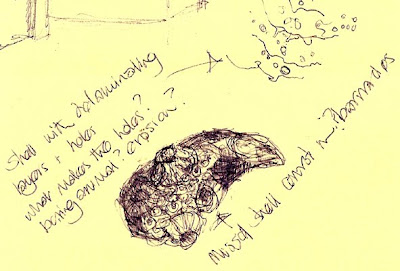 Shell with delaminating
layers + holes
what makes the holes?
boring animal? erosion?
Mussel shell covered in barnacles